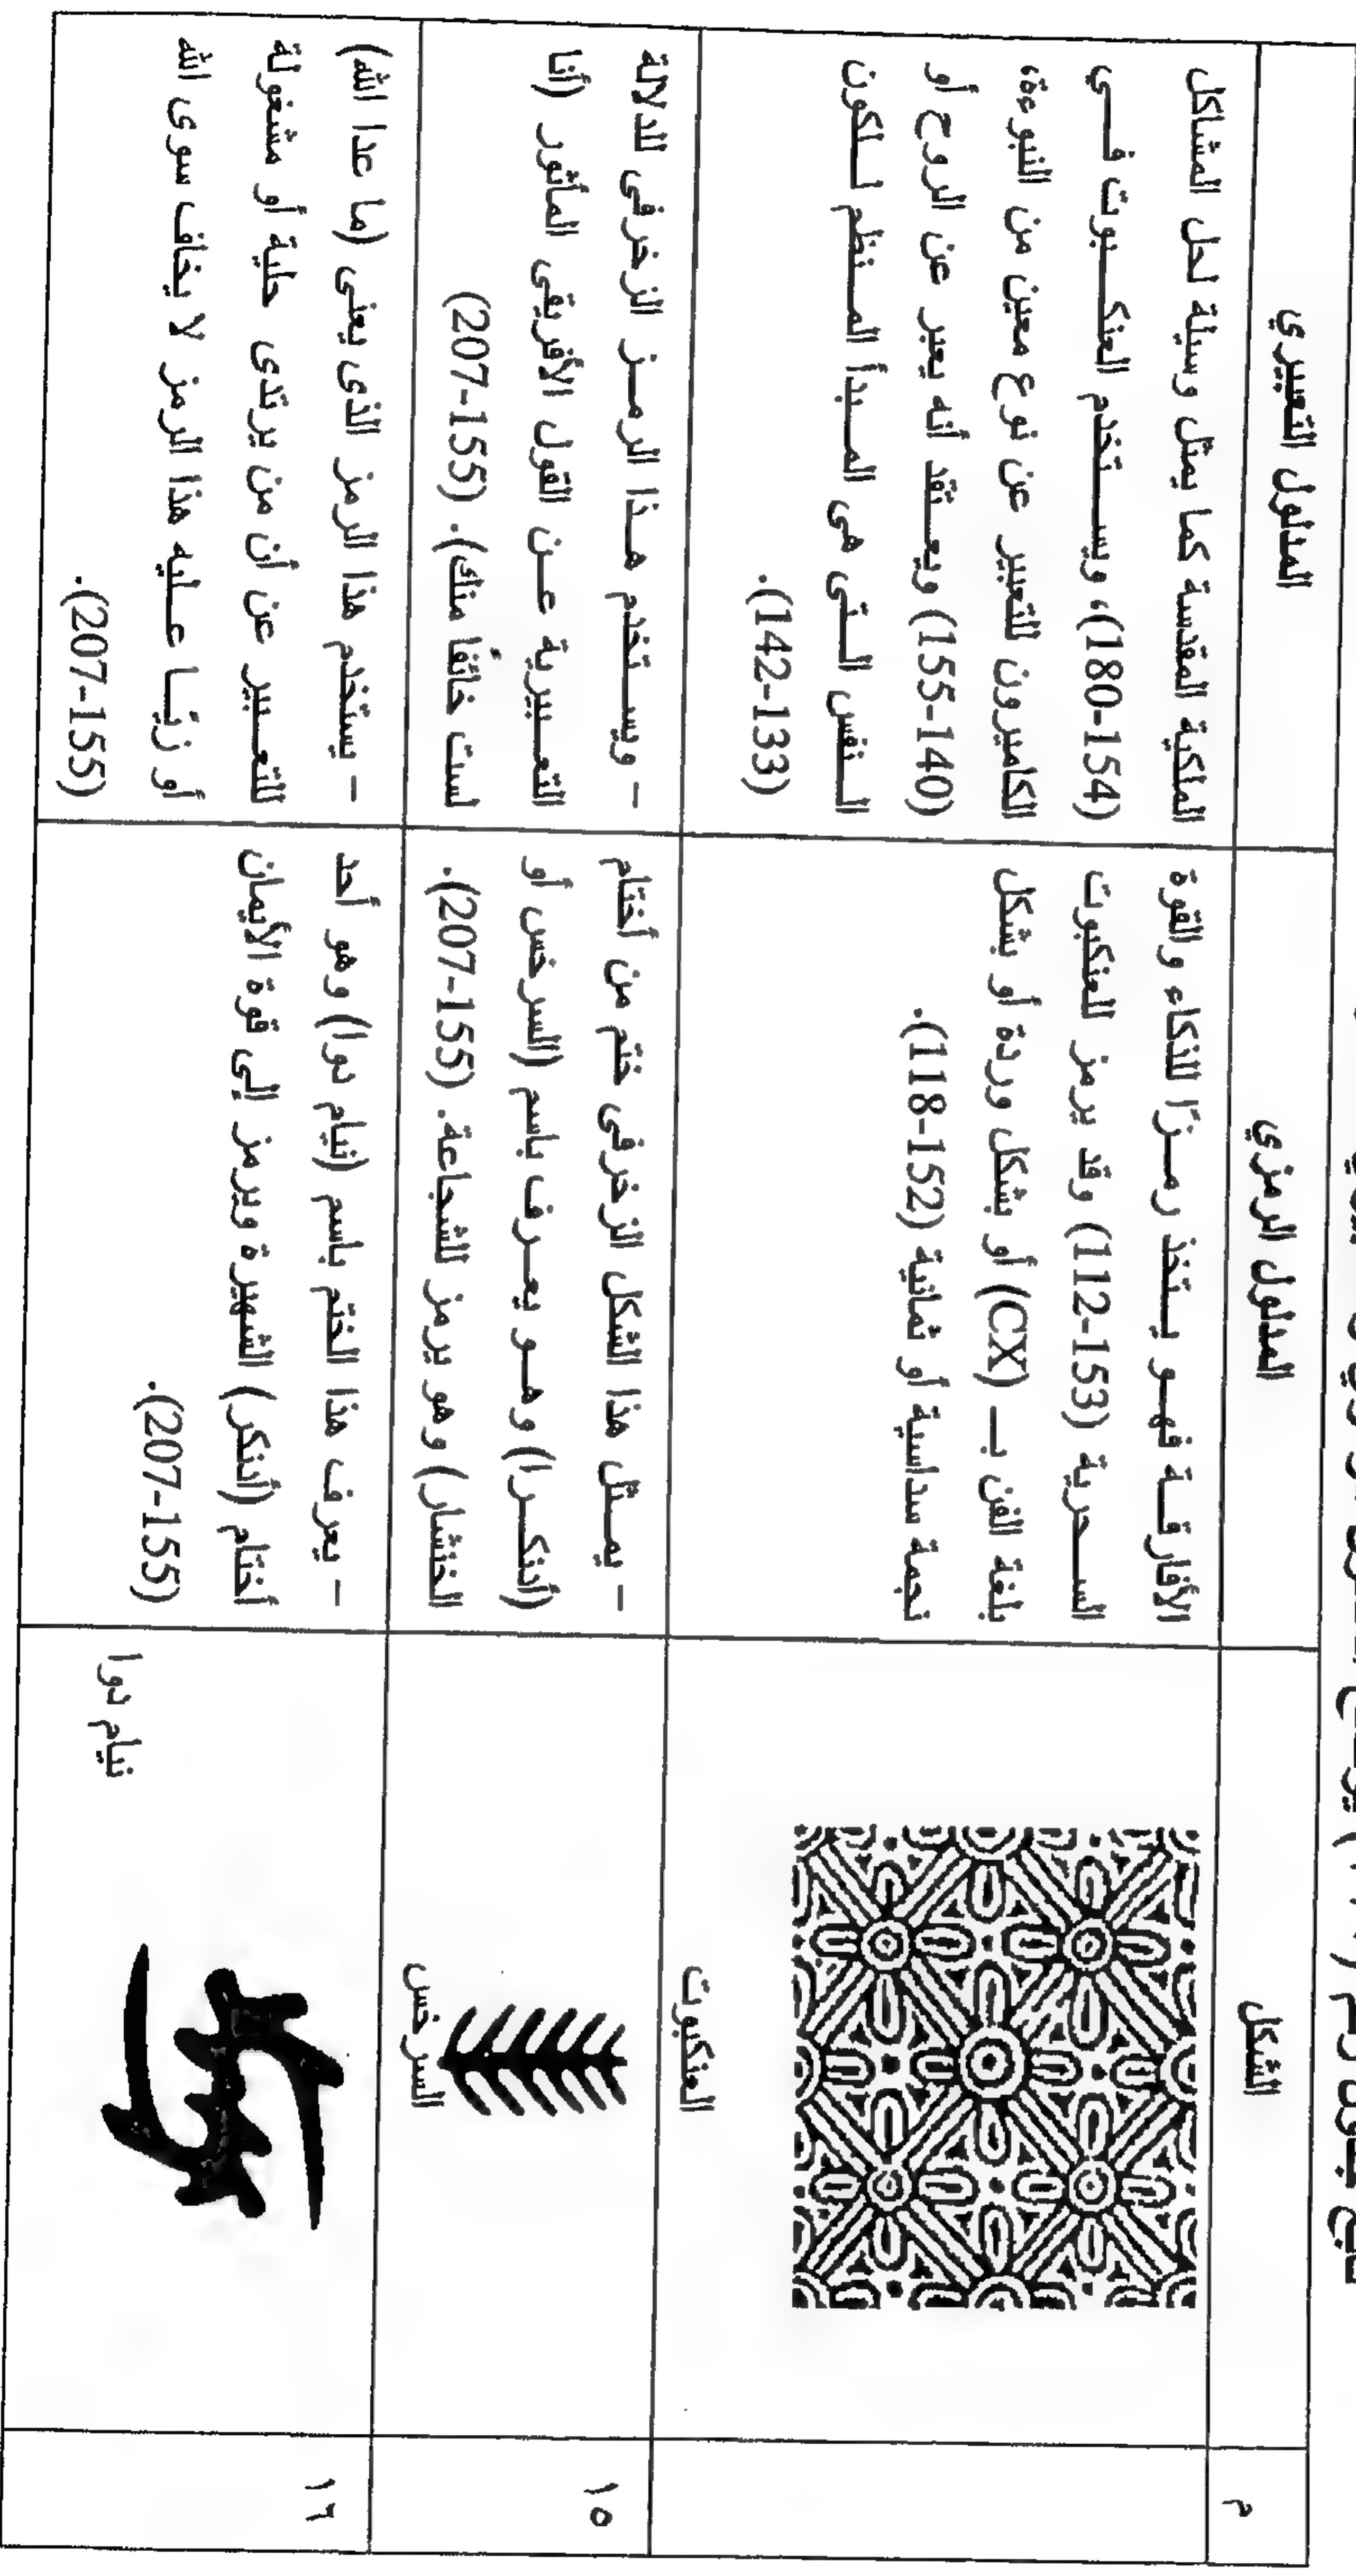 م
الشكل
المدلول الرمزي
المدلول التعبيري
العنكبوت
الأفارقة فهو يتخذ رمزًا للذكاء والقوة
السحرية (153-112) وقد يرمز للعنكبوت
بلغة الفن بـ (CX) أو بشكل وردة أو بشكل
نجمة سداسية أو ثمانية (152-118).
الملكية المقدسة كما يمثل وسيلة لحل المشاكل
(154-180)، ويستخدم العنكبوت في
الكاميرون للتعبير عن نوع معين من النبوءة،
(140-155) ويعتقد أنه يعبر عن الروح أو
النفس التي هى المبدأ المنظم لكون
(133-142).
١٥
السرخس
- يمثل هذا الشكل الزخرفى ختم من أختام
(أدنكرا) وهو يعرف باسم (السرخس أو
الخنشار) وهو يرمز للشجاعة. (155-207).
- ويستخدم هذا الرمز الزخرفى للدلالة
التعبيرية عن القول الأفريقى المأثور (أنا
لست خائفًا منك). (155-207)
١٦
نيام دوا
- يعرف هذا الختم باسم (نيام دوا) وهو أحد
أختام (أدنكر) الشهيرة ويرمز إلى قوة الأيمان
(155-207).
- يستخدم هذا الرمز الذى يعنى (ما عدا الله)
للتعبير عن أن من يرتدى حلية أو مشغولة
أو زيًا عليه هذا الرمز لا يخاف سوى الله
(155-207).